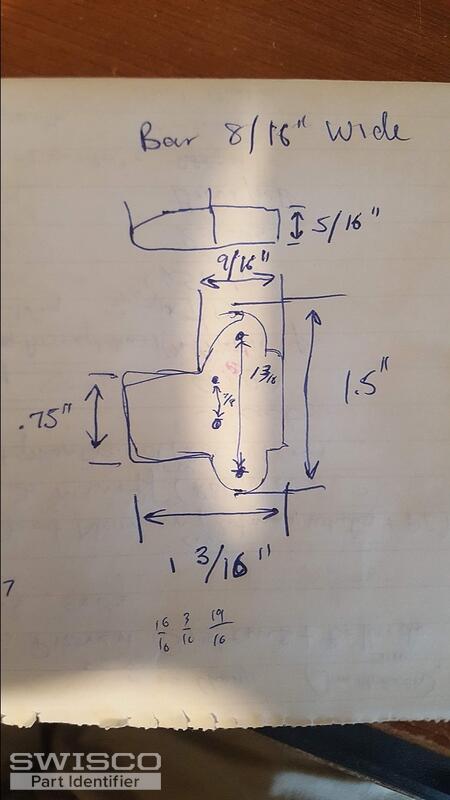 Bar 8/16" Wide
5/16"
9/16"
1 3/16
.75"
1.5"
1 3/16"
7
16/16 3/16 19/16
SWISCO
Part Identifier